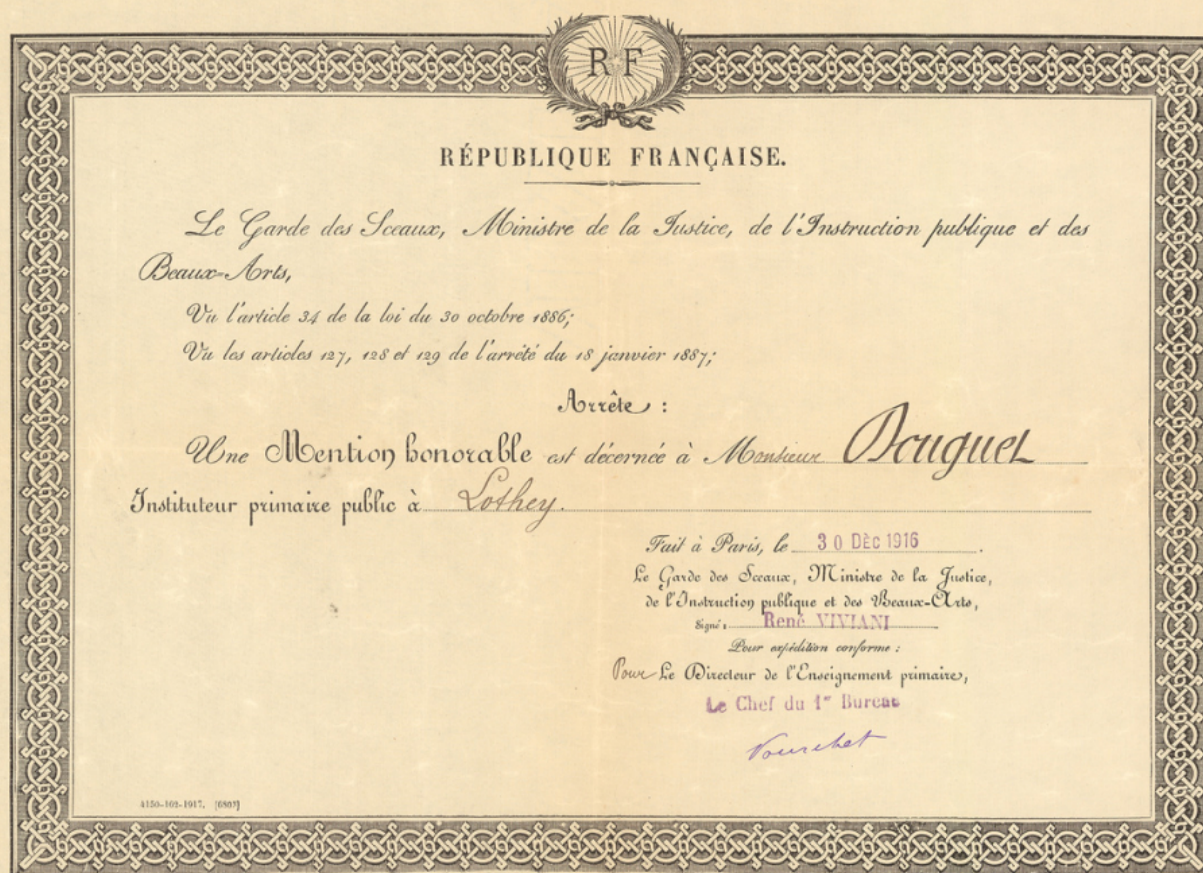 R F
RÉPUBLIQUE FRANÇAISE.
Le Garde des Sceaux, Ministre de la Justice, de l'Instruction publique et des
Beaux-Arts,
Vu l'article 34 de la loi du 30 octobre 1886;
Vu les articles 127, 128 et 129 de l'arrêté du 18 janvier 1887;
Arrête :
Une Mention honorable est décernée à Monsieur Douguet
Instituteur primaire public à Lothey.
Fait à Paris, le 30 DÈC 1916.
Le Garde des Sceaux, Ministre de la Justice,
de l'Instruction publique et des Beaux-Arts,
Signé : René VIVIANI
Pour expédition conforme :
Pour Le Directeur de l'Enseignement primaire,
Le Chef du 1er Bureau
4150-103-1917.